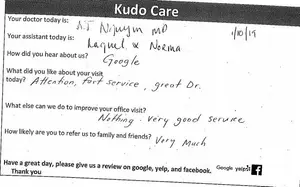 Kudo Care
Your doctor today is: A.T Nguyen MD 1/10/19
Your assistant today is: Raquel & Norma
How did you hear about us? Google
What did you like about your visit
today? Attention, fast service, great Dr.
What else can we do to improve your office visit?
Nothing very good service
How likely are you to refer us to family and friends? Very Much
Have a great day, please give us a review on google, yelp, and facebook. Google yelp f
Thank you